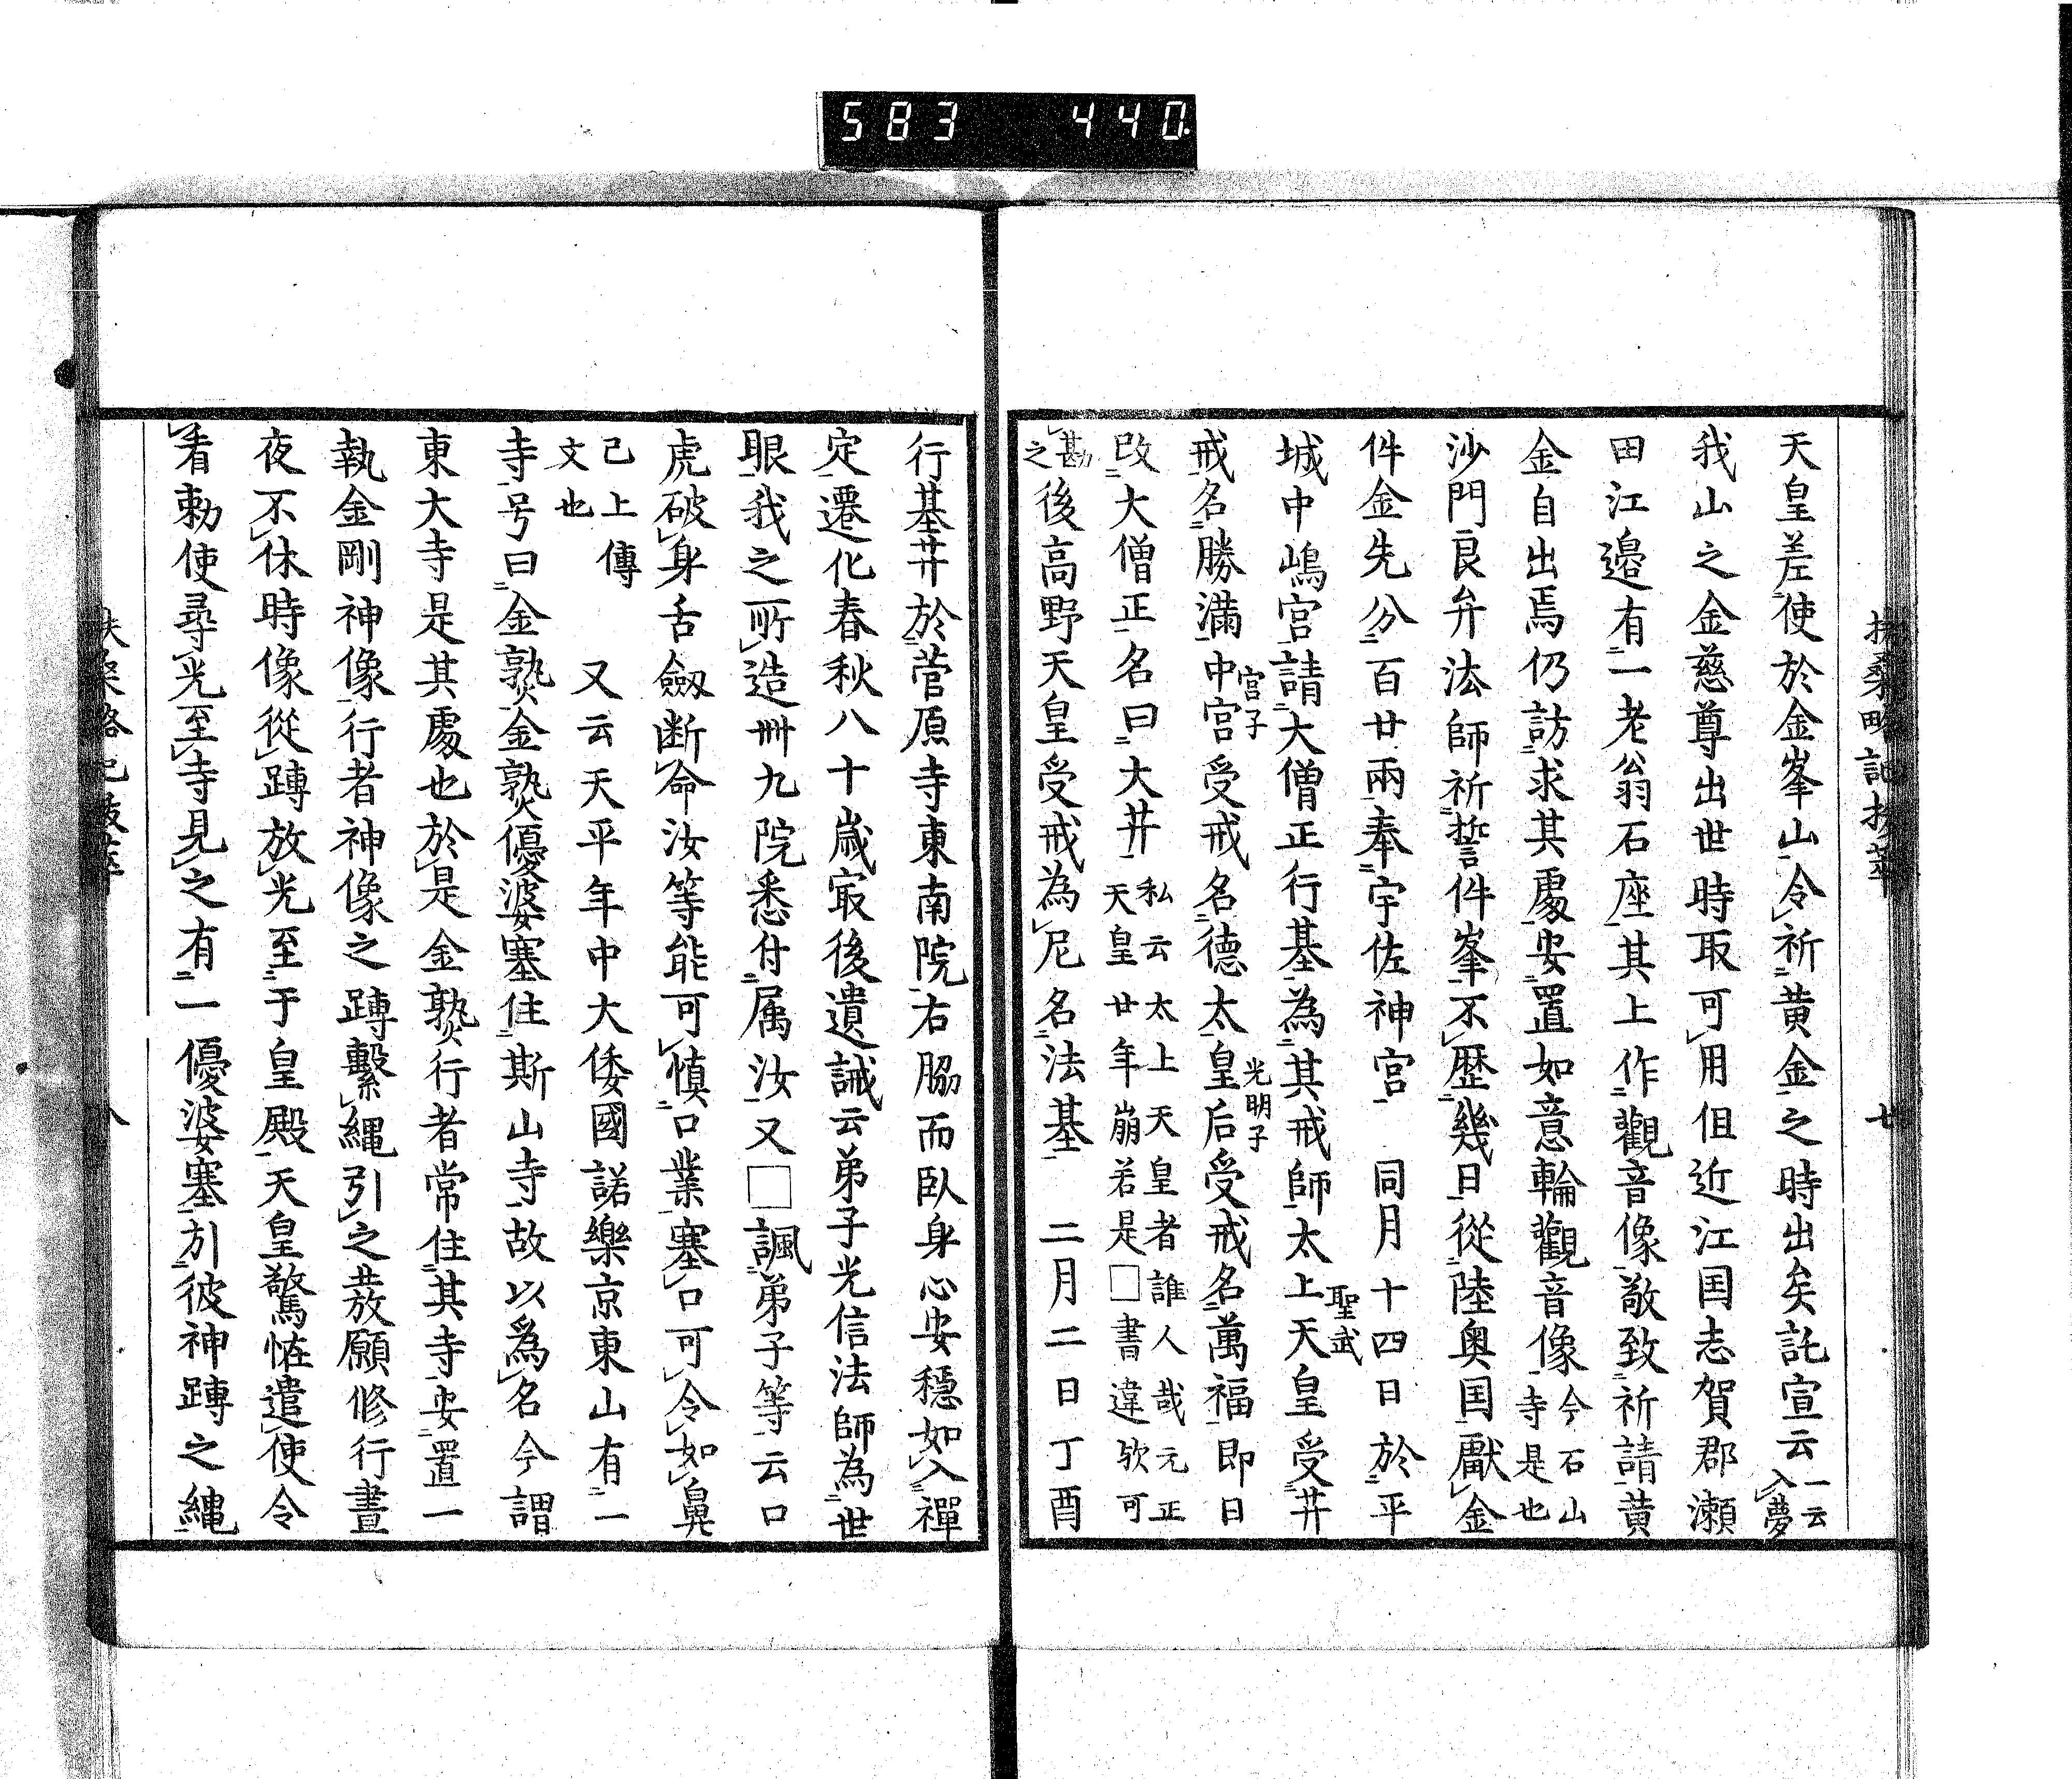 583 440
扶桑略記抜萃 七
天皇差使於金峯山令祈黄金之時出矣託宣云一云入夢
我山之金慈尊出世時取可用但近江国志賀郡瀬
田江邉有一老翁石座其上作觀音像敬致祈請黄
金自出焉仍訪求其處安置如意輪觀音像今石山寺是也
沙門良弁法師祈誓件峯不歴幾日從陸奥国獻金
件金先分百廿兩奉宇佐神宮 同月十四日於平
城中嶋宮請大僧正行基為其戒師太上天皇聖武受井
戒名勝満中宮宮子受戒名德太皇后光明子受戒名萬福即日
改大僧正名曰大井私云太上天皇者誰人哉元正天皇廿年崩若是□書違欤可
勘之後高野天皇受戒為尼名法基 二月二日丁酉
行基井於菅原寺東南院右脇而臥身心安穏如入禪
定遷化春秋八十歳㝡後遺誡云弟子光信法師為世
眼我之所造卌九院悉付属汝又□諷弟子等云口
虎破身舌劔断命汝等能可慎口業塞口可令如鼻
已上傳文也 又云天平年中大倭國諾樂京東山有一
寺号曰金𤍨金𤍨優婆塞住斯山寺故以爲名今謂
東大寺是其處也於是金𤍨行者常住其寺安置一
執金剛神像行者神像之蹲繫縄引之発願修行晝
夜不休時像從蹲放光至于皇殿天皇驚恠遣使令
看勅使尋光至寺見之有一優婆塞引彼神蹲之縄
扶桑略記抜萃 八